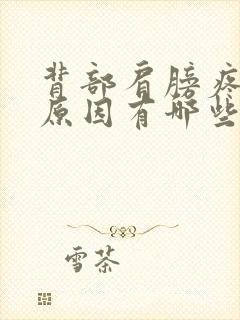 背部肩膀疼
原因有哪些
雪茶